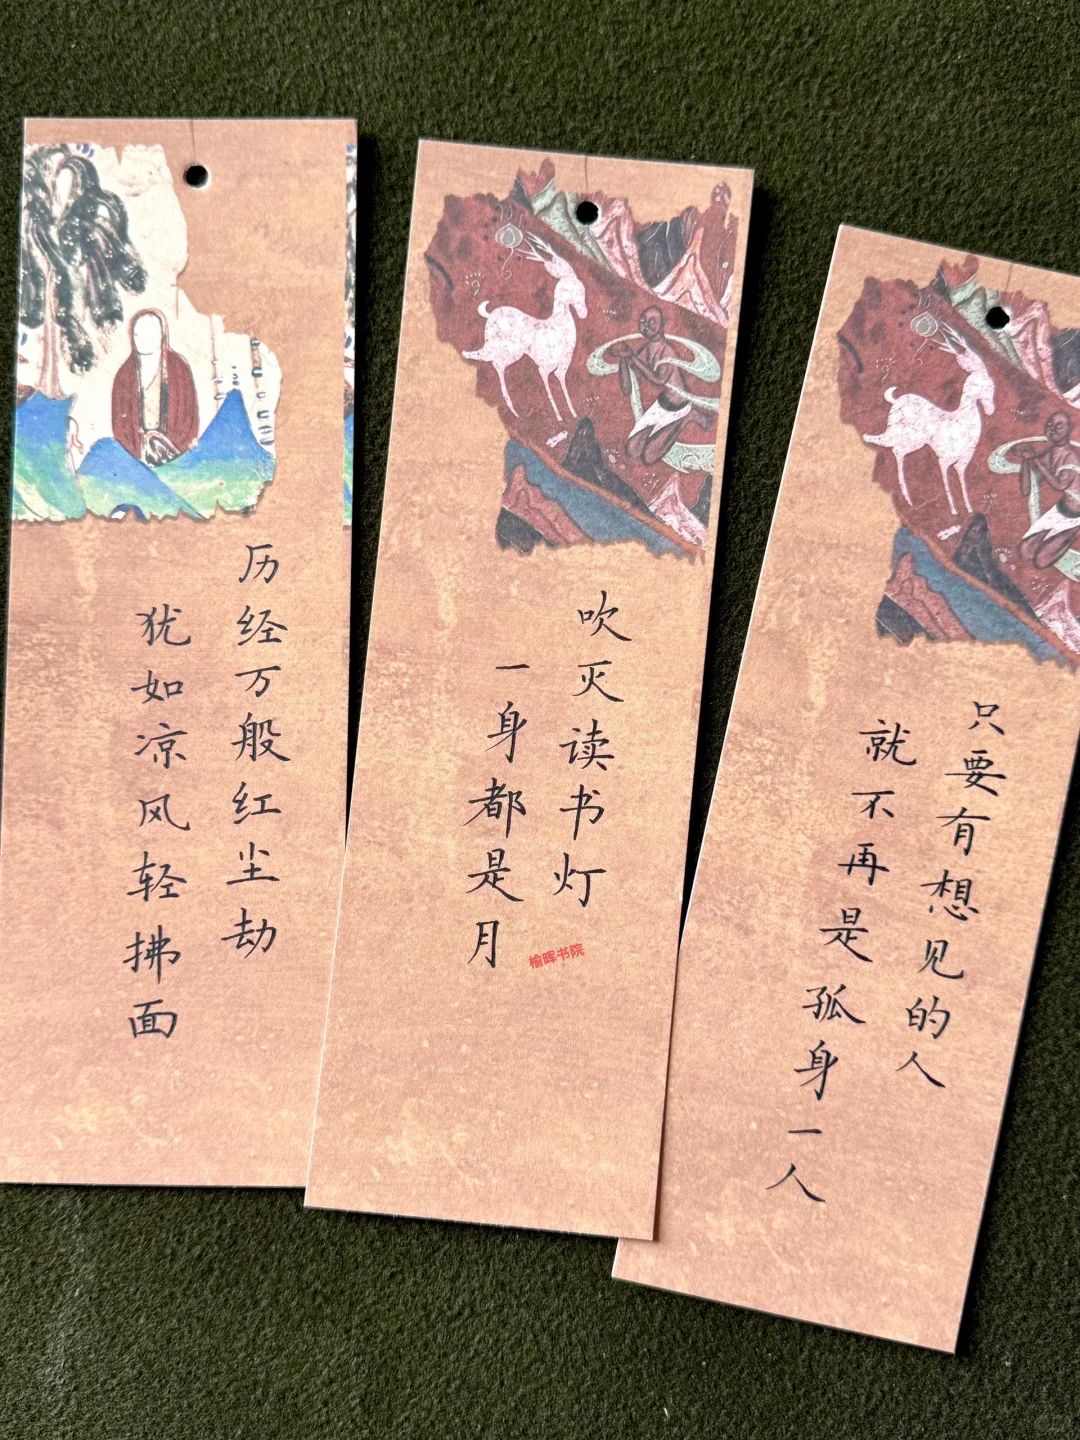 历经万般红尘劫
犹如凉风轻拂面
吹灭读书灯
一身都是月
榆晖书院
只要有想见的人
就不再是孤身一人